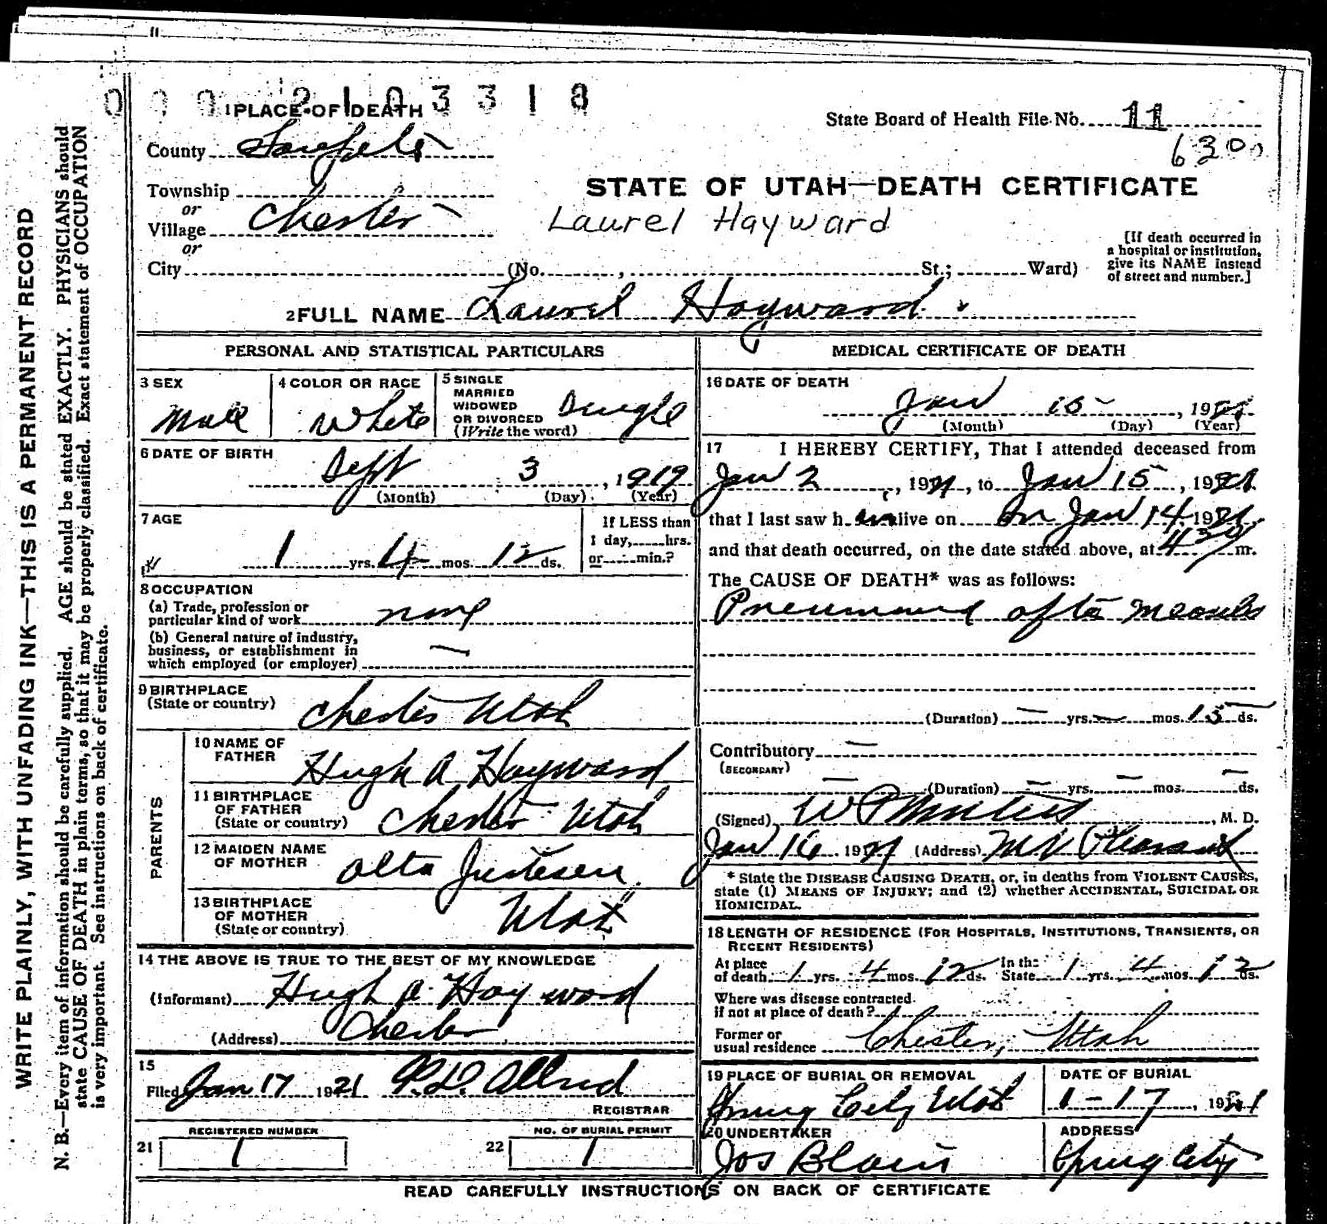 0 0 0 2 1 0 3 3 1 8
1 PLACE OF DEATH
State Board of Health File No. 11
6300
County Sanpete
Township
or
Village Chester
or
City (No. , St.; Ward)
STATE OF UTAH—DEATH CERTIFICATE
Laurel Hayward
[If death occurred in
a hospital or institution,
give its NAME instead
of street and number.]
2 FULL NAME Laurel Hayward
PERSONAL AND STATISTICAL PARTICULARS
3 SEX
Male
4 COLOR OR RACE
White
5 SINGLE
MARRIED
WIDOWED
OR DIVORCED
(Write the word)
Single
6 DATE OF BIRTH
Sept 3, 1919
(Month) (Day) (Year)
7 AGE
1 yrs. 4 mos. 12 ds.
If LESS than
1 day, hrs.
or min.?
8 OCCUPATION
(a) Trade, profession or
particular kind of work none
(b) General nature of industry,
business, or establishment in
which employed (or employer) —
9 BIRTHPLACE
(State or country) Chester Utah
PARENTS
10 NAME OF
FATHER Hugh A Hayward
11 BIRTHPLACE
OF FATHER
(State or country) Chester Utah
12 MAIDEN NAME
OF MOTHER Alta Justesen
13 BIRTHPLACE
OF MOTHER
(State or country) Utah
14 THE ABOVE IS TRUE TO THE BEST OF MY KNOWLEDGE
(Informant) Hugh A Hayward
(Address) Chester
15
Filed Jan 17 1921 Allred
REGISTRAR
REGISTERED NUMBER
21 1
NO. OF BURIAL PERMIT
22 1
MEDICAL CERTIFICATE OF DEATH
16 DATE OF DEATH
Jan 15, 1921
(Month) (Day) (Year)
17 I HEREBY CERTIFY, That I attended deceased from
Jan 2, 1921, to Jan 15, 1921
that I last saw him alive on on Jan 14, 1921
and that death occurred, on the date stated above, at 430 m.
The CAUSE OF DEATH* was as follows:
Pneumonia after measles
(Duration) — yrs. — mos. 15 ds.
Contributory —
(SECONDARY)
— (Duration) — yrs. — mos. — ds.
(Signed) W P , M. D.
Jan 16 1921 (Address) Mt Pleasant
* State the DISEASE CAUSING DEATH, or, in deaths from VIOLENT CAUSES,
state (1) MEANS OF INJURY; and (2) whether ACCIDENTAL, SUICIDAL OR
HOMICIDAL.
18 LENGTH OF RESIDENCE (FOR HOSPITALS, INSTITUTIONS, TRANSIENTS, OR
RECENT RESIDENTS)
At place
of death 1 yrs. 4 mos. 12 ds. In the
State 1 yrs. 4 mos. 12 ds.
Where was disease contracted
if not at place of death?
Former or
usual residence Chester, Utah
19 PLACE OF BURIAL OR REMOVAL
Spring City Utah
DATE OF BURIAL
1-17, 1921
20 UNDERTAKER
Jos Blain
ADDRESS
Spring City
READ CAREFULLY INSTRUCTIONS ON BACK OF CERTIFICATE
WRITE PLAINLY, WITH UNFADING INK—THIS IS A PERMANENT RECORD
N. B.—Every item of information should be carefully supplied. AGE should be stated EXACTLY. PHYSICIANS should
state CAUSE OF DEATH in plain terms, so that it may be properly classified. Exact statement of OCCUPATION
is very important. See instructions on back of certificate.